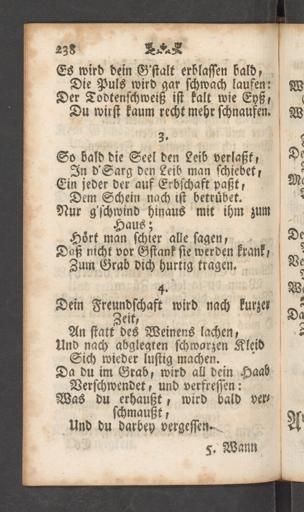 238
Es wird dein G'stalt erblassen bald,
Die Puls wird gar schwach laufen:
Der Todtenschweiß ist kalt wie Eyß,
Du wirst kaum recht mehr schnaufen.
3.
So bald die Seel den Leib verlaßt,
In d'Sarg den Leib man schiebet,
Ein jeder der auf Erbschaft paßt,
Dem Schein nach ist betrübet.
Nur g'schwind hinaus mit ihm zum
Haus;
Hört man schier alle sagen,
Daß nicht vor Gstank sie werden krank,
Zum Grab dich hurtig tragen.
4.
Dein Freundschaft wird nach kurzer
Zeit,
An statt des Weinens lachen,
Und nach abglegten schwarzen Kleid
Sich wieder lustig machen.
Da du im Grab, wird all dein Haab
Verschwendet, und verfressen:
Was du erhaußt, wird bald ver-
schmaußt,
Und du darbey vergessen.
5. Wann